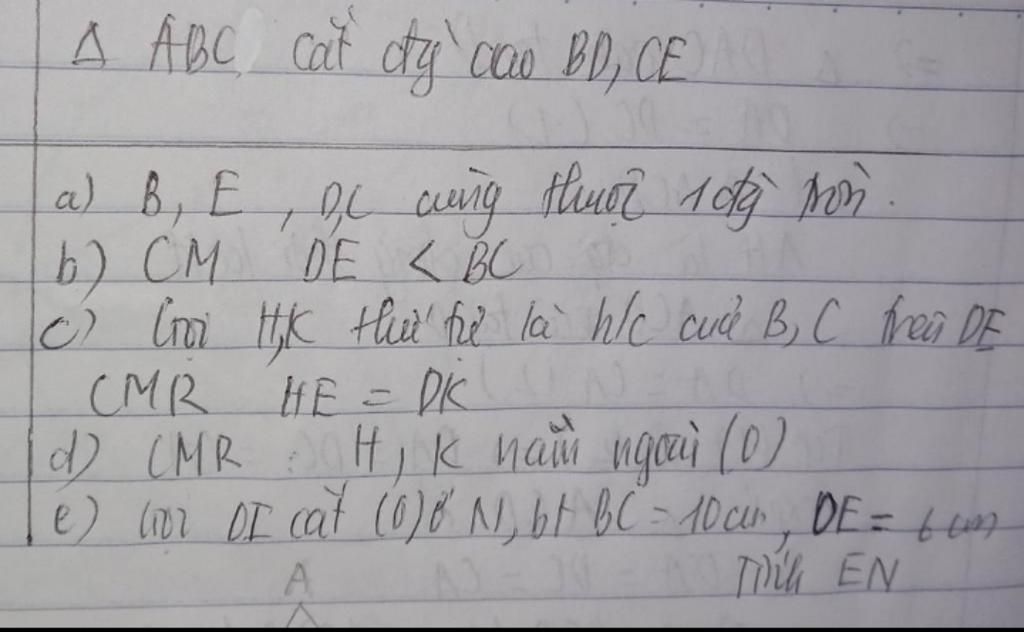 Δ ABC cắt đg cao BD, CE
a) B, E, D, C cùng thuộc 1 đg tròn.
b) CM DE < BC
c) Gọi H,K thứ tự là h/c của B, C trên DE
CMR HE = DK
d) CMR : H, K nằm ngoài (O)
e) Gọi DI cắt (O) ở N, bt BC = 10 cm, DE = 6 cm
Tính EN
A